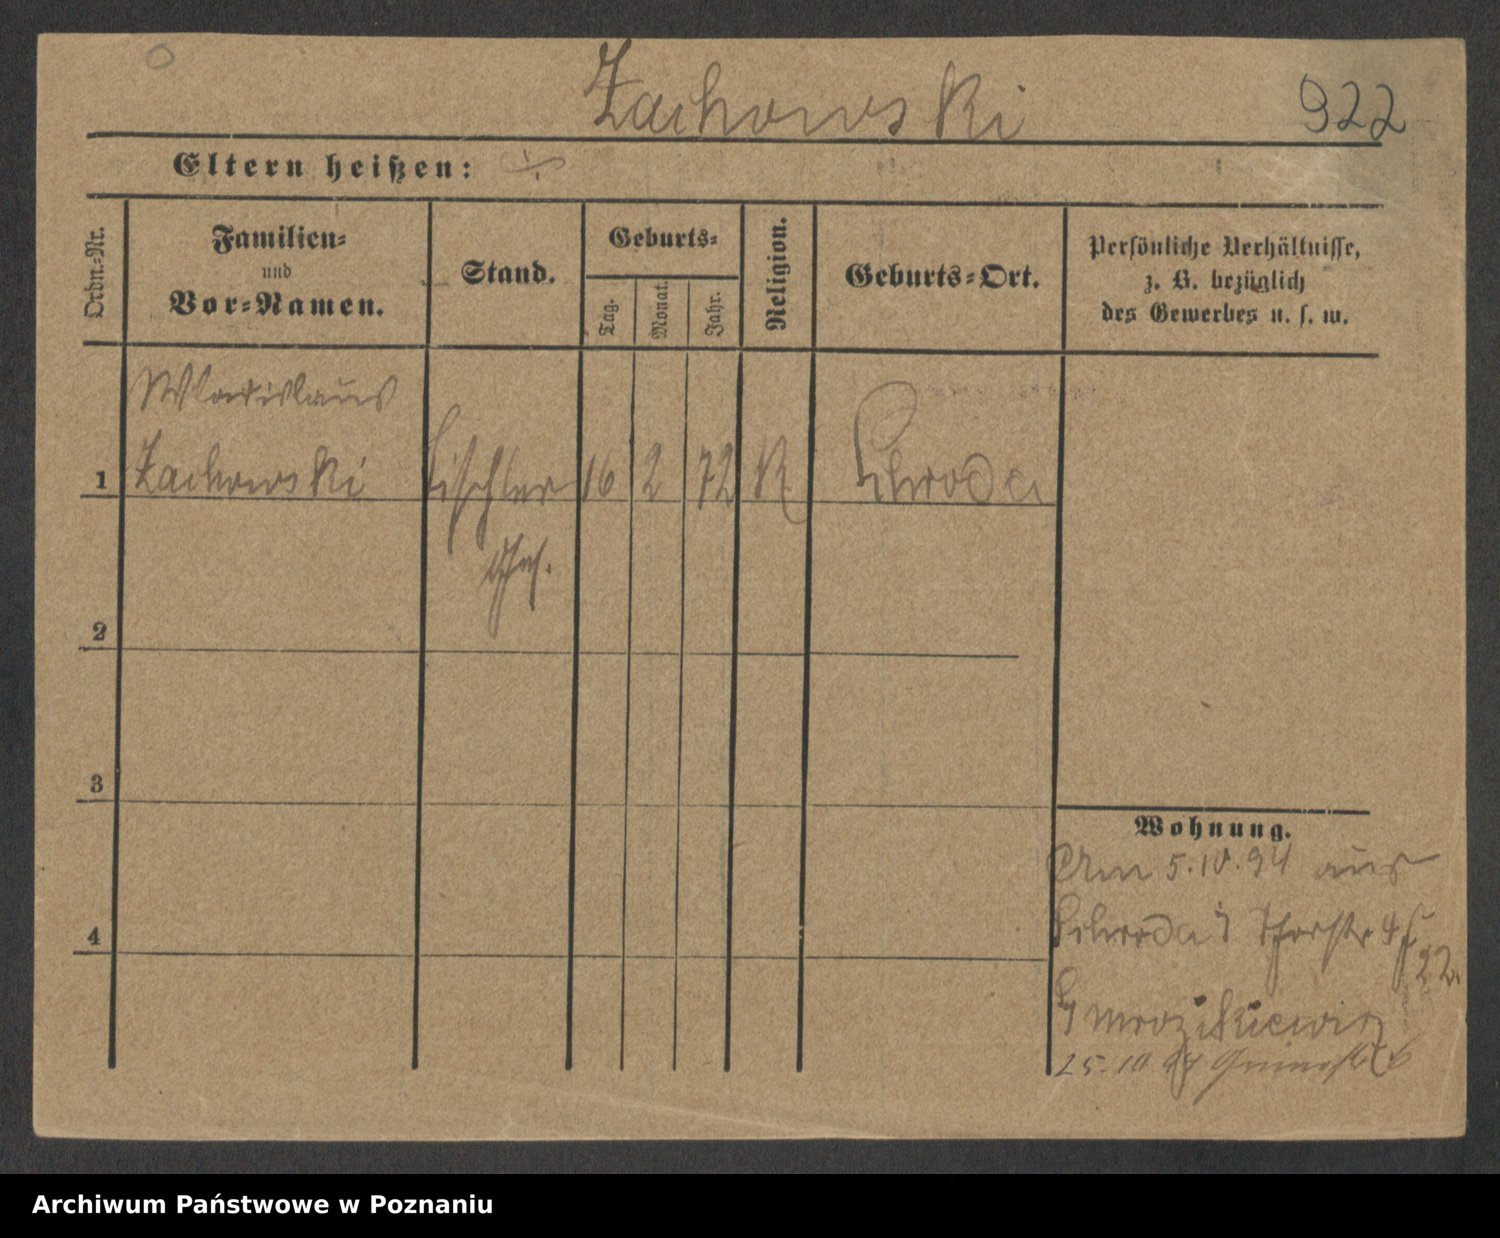 Zachowski
922
Eltern heißen:
Ordn.-Nr.
Familien-
und
Vor-Namen.
Stand.
Geburts-
Tag.
Monat.
Jahr.
Religion.
Geburts-Ort.
Persönliche Verhältnisse,
z. B. bezüglich
des Gewerbes u. s. w.
Wladislaus
1 Zachowski Tischler 16 2 72 K Schroda
2
3
4
Wohnung.
Am 5.10.94 aus
Schroda
22.
25.10.94
Archiwum Państwowe w Poznaniu